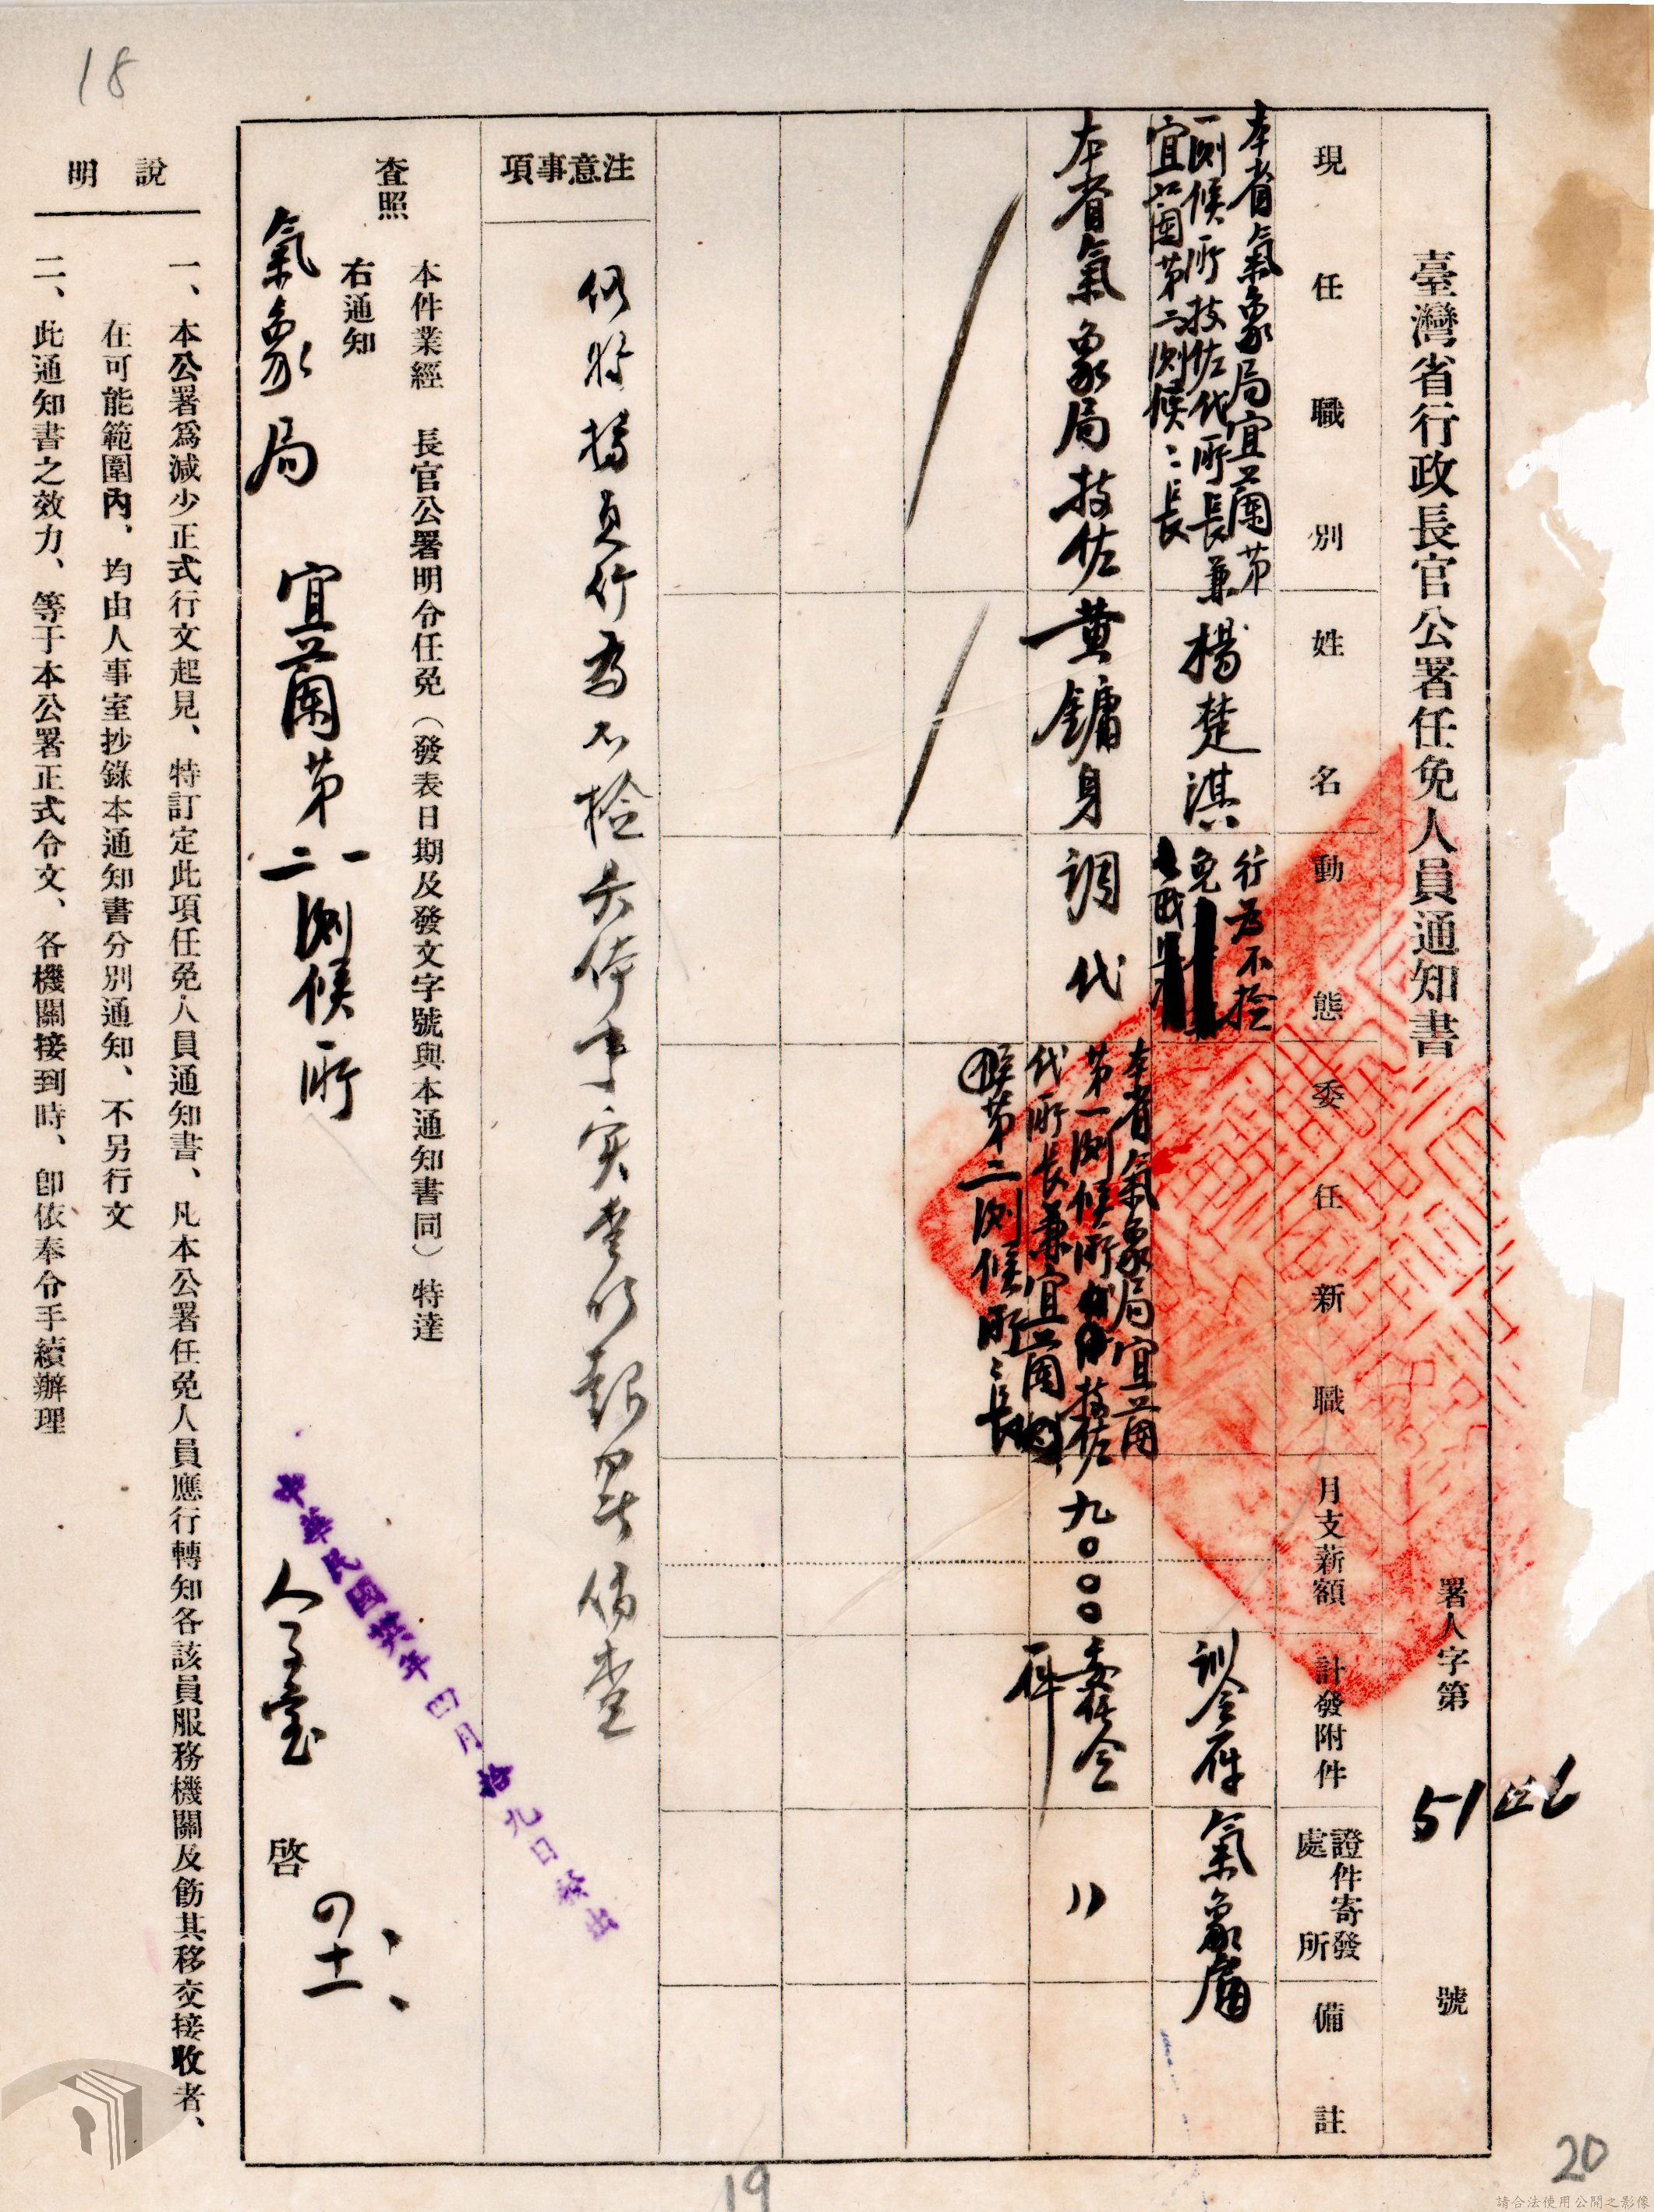 18
臺灣省行政長官公署任免人員通知書
署人字第
號
現任職別
姓名
動態
委任新職
月支薪額
計發附件
證件寄發
處所
備註
本省氣象局宜蘭第
一測候所技佐代所長兼
宜蘭第二測候所長
楊楚淇
行為不檢
免
訓令一件
氣象局
本省氣象局技佐
黃鏞身
調代
本省氣象局宜蘭
第一測候所技佐
代所長兼宜蘭
第二測候所長
九〇〇〇
委任令
一件
〃
注意事項
仍將楊員行為不檢具体事实查明報署備查
查照
本件業經 長官公署明令任免（發表日期及發文字號與本通知書同）特達
右通知
氣象局 宜蘭第一二測候所
人事室 啓
中華民國叁拾陸年四月拾九日發出
說明
一、本公署爲減少正式行文起見、特訂定此項任免人員通知書、凡本公署任免人員應行轉知各該員服務機關及飭其移交接收者、
在可能範圍內、均由人事室抄錄本通知書分別通知、不另行文
二、此通知書之效力、等于本公署正式令文、各機關接到時、卽依奉令手續辦理
19
20
請合法使用公開之影像